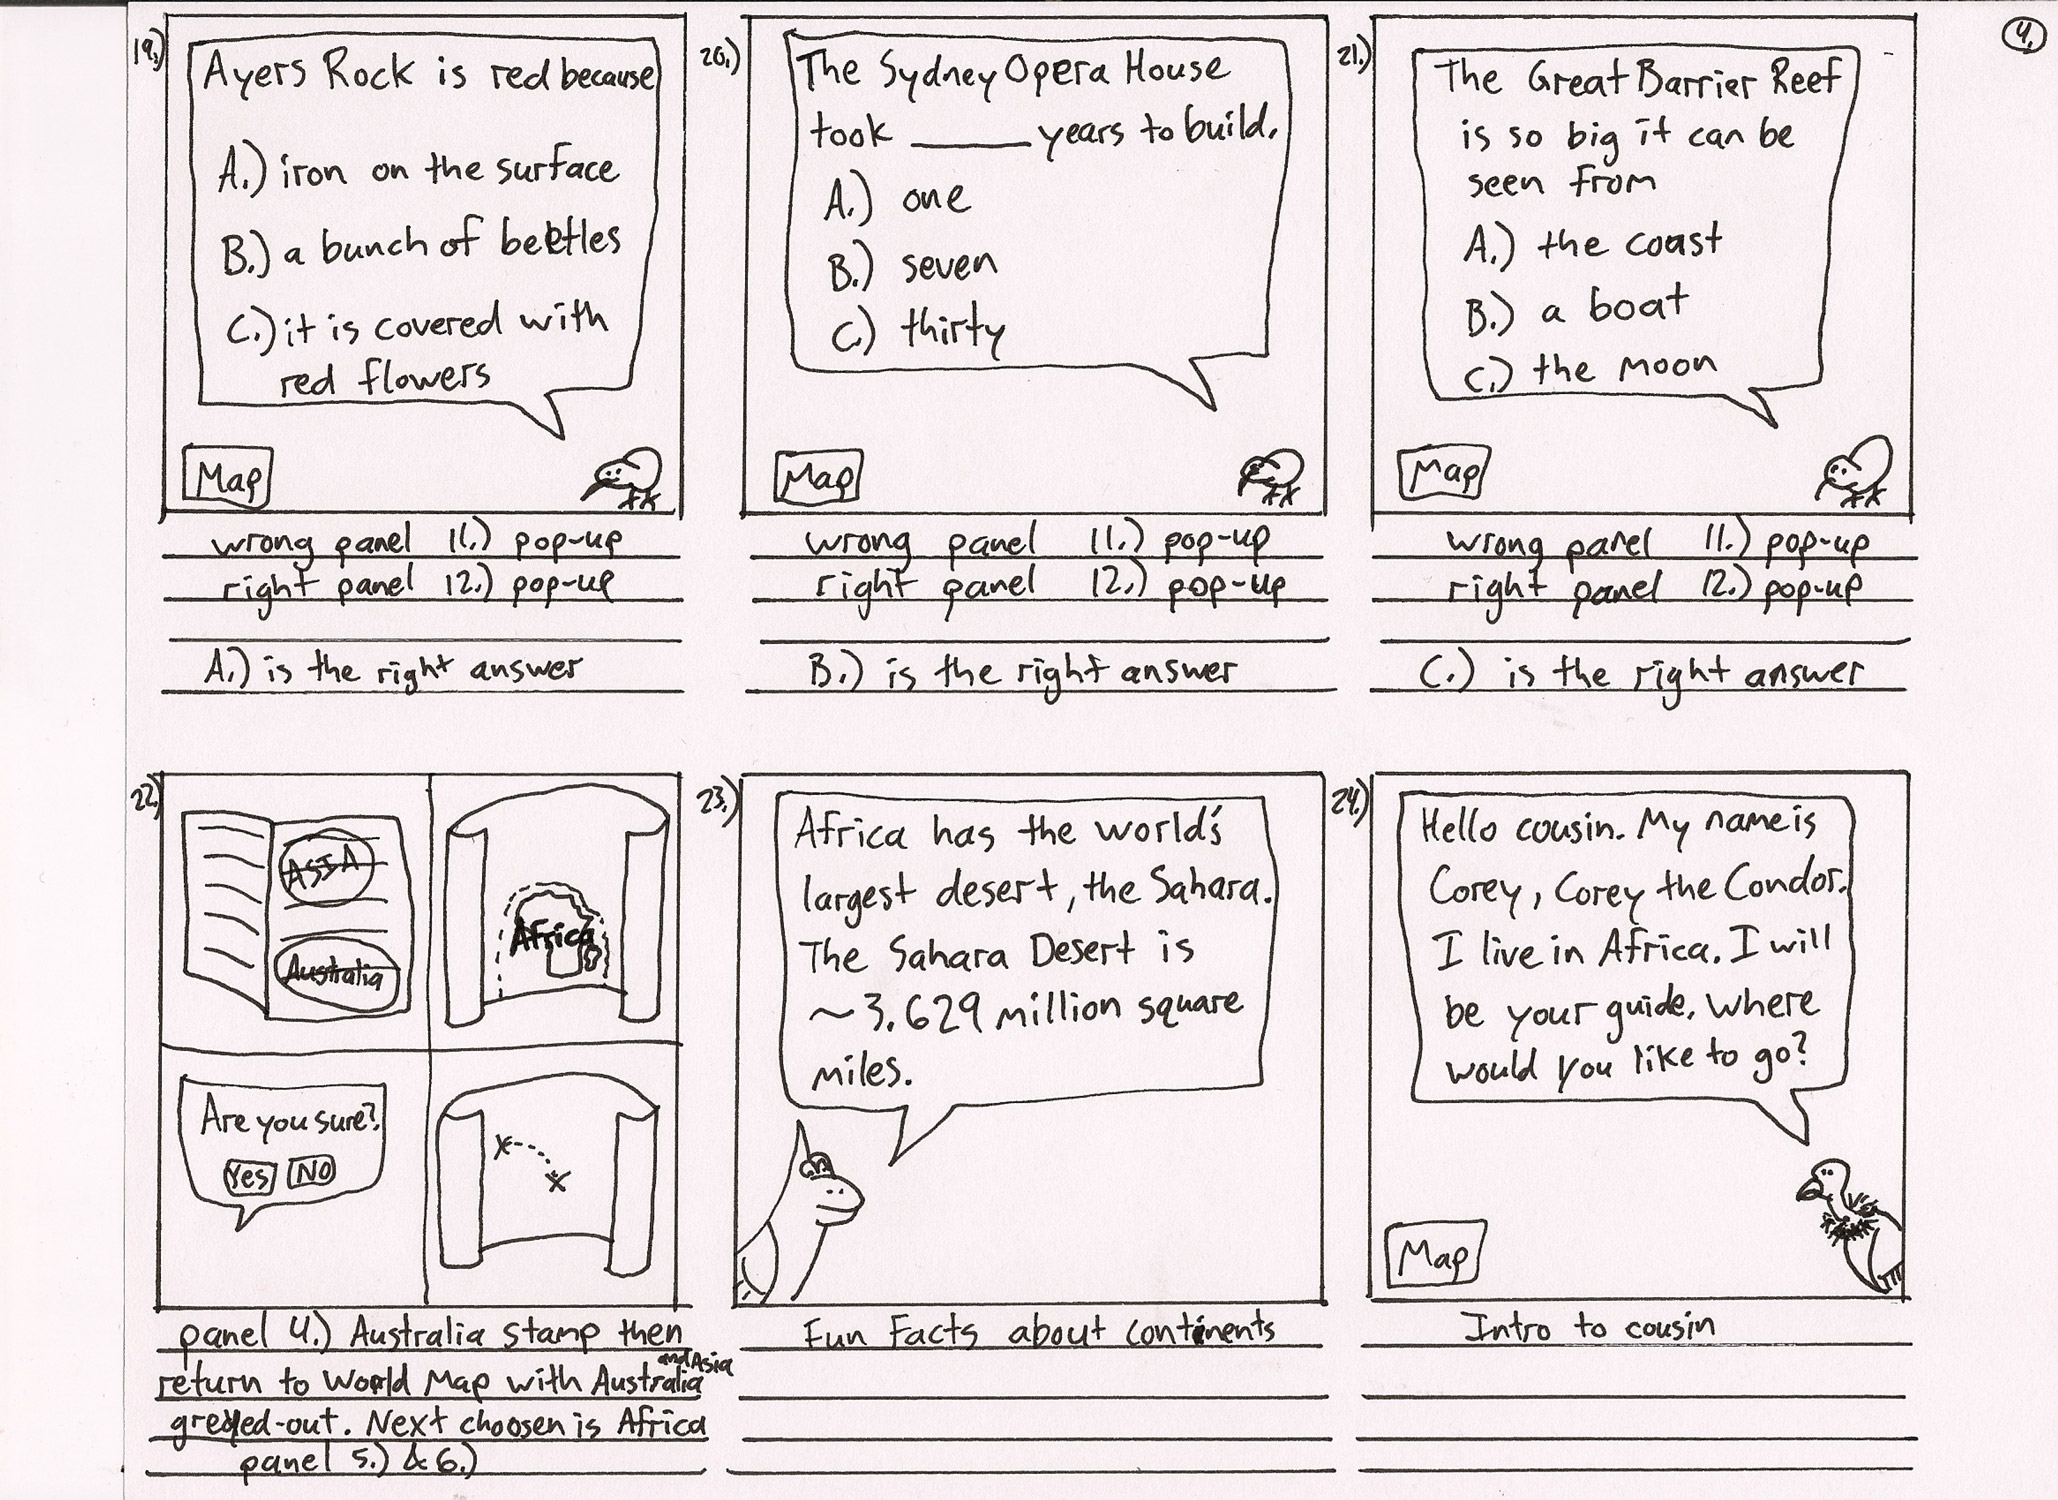 4.
19.)
Ayers Rock is red because
A.) iron on the surface
B.) a bunch of beetles
C.) it is covered with
red flowers
Map
wrong panel 11.) pop-up
right panel 12.) pop-up
A.) is the right answer
20.)
The Sydney Opera House
took _____ years to build.
A.) one
B.) seven
C.) thirty
Map
wrong panel 11.) pop-up
right panel 12.) pop-up
B.) is the right answer
21.)
The Great Barrier Reef
is so big it can be
seen from
A.) the coast
B.) a boat
C.) the moon
Map
wrong panel 11.) pop-up
right panel 12.) pop-up
C.) is the right answer
22.)
ASIA
Australia
Africa
Are you sure?
Yes NO
panel 4.) Australia stamp then
return to World Map with Australia and Asia
greyed-out. Next choosen is Africa
panel 5.) & 6.)
23.)
Africa has the world's
largest desert, the Sahara.
The Sahara Desert is
~3.629 million square
miles.
Fun Facts about continents
24.)
Hello cousin. My name is
Corey, Corey the Condor.
I live in Africa. I will
be your guide. Where
would you like to go?
Map
Intro to cousin